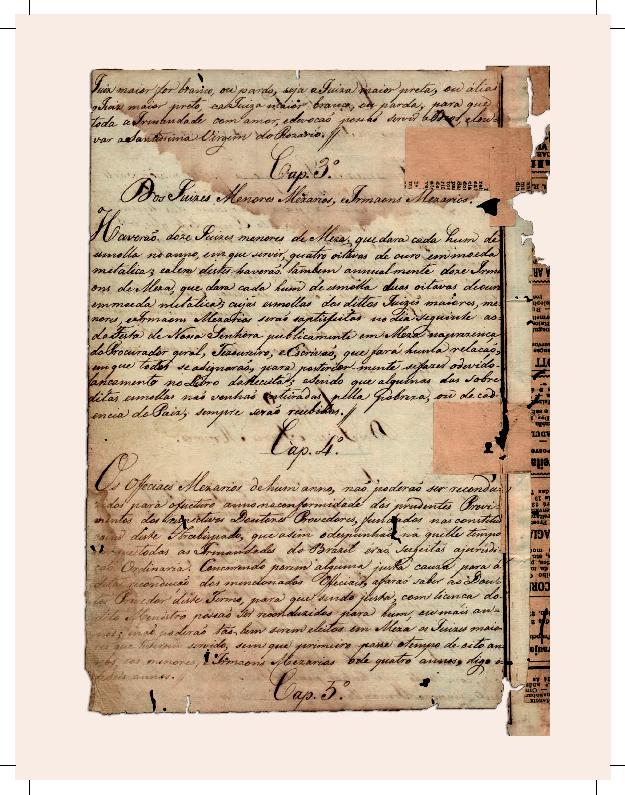 Juiz maior for branco, ou pardo, seja a Juiza maior preta, ou álias
o Juiz maior preto, e a Juiza maior branca, ou parda, para que
toda a Irmandade com amor, edevoçaõ possaõ servir a Deos, elou-
var a Santissima Virgem do Rozario.//
Cap. 3.º
Dos Juizes Menores Mezarios, e Irmaons Mezarios.
Haveraõ doze Juizes menores de Meza, que dara cada hum de
esmolla no anno, em que servir, quatro oitavas de ouro em moeda
metalica; ealem distes haveraõ tambem annualmente doze Irma
ons de Meza, que dara cada hum de esmolla duas oitavas deouro
em moeda metalica; cujas esmollas dos dittos Juizes maiores, me
nores, e Irmaons Mezarios seraõ saptisfeitas no dia seguinte ao
da Festa de Nossa Senhora publicamente em Meza na prezença
do Procurador geral, Tezoureiro, e Escrivaõ, que fara huma relaçaõ,
em que todos se asignaraõ, para posterior mente se fazer o devido
lancamento no Livro da Receita; e sendo que algumas das sobre
ditas esmollas naõ venhaõ inteiradas pella pobreza, ou de cad
encia do Paiz, sempre seraõ recebidas.//
Cap. 4.º
Os Officiaes Mezarios de hum anno, naõ poderaõ ser recondu-
zidos para ofucturo anno na conformidade dos prudentes Provi-
mentos dos Doutores Provedores, fundados nas constitui
deste Arcebispado, que asim o dispunhaõ na quelle tempo
que todas as Irmandades do Brazil eraõ sugeitas ajurisdi
caõ Ordinaria. Concorrendo porem alguma justa cauza para a
dita reconduçaõ dos mencionados Officiaes, afaraõ saber ao Dout
or Provedor deste Termo, para que sendo justa, com licença do
dito Ministro possaõ ser reconduzidos para hum, ou mais an-
nos; e naõ poderaõ taõ bem serem eleitos em Meza os Juizes maio
res que tiverem servido, sem que primeiro passe o tempo de oito an
nos, os menores, e Irmaons Mezarios o de quatro annos, digo o
annos.
Cap. 5.º